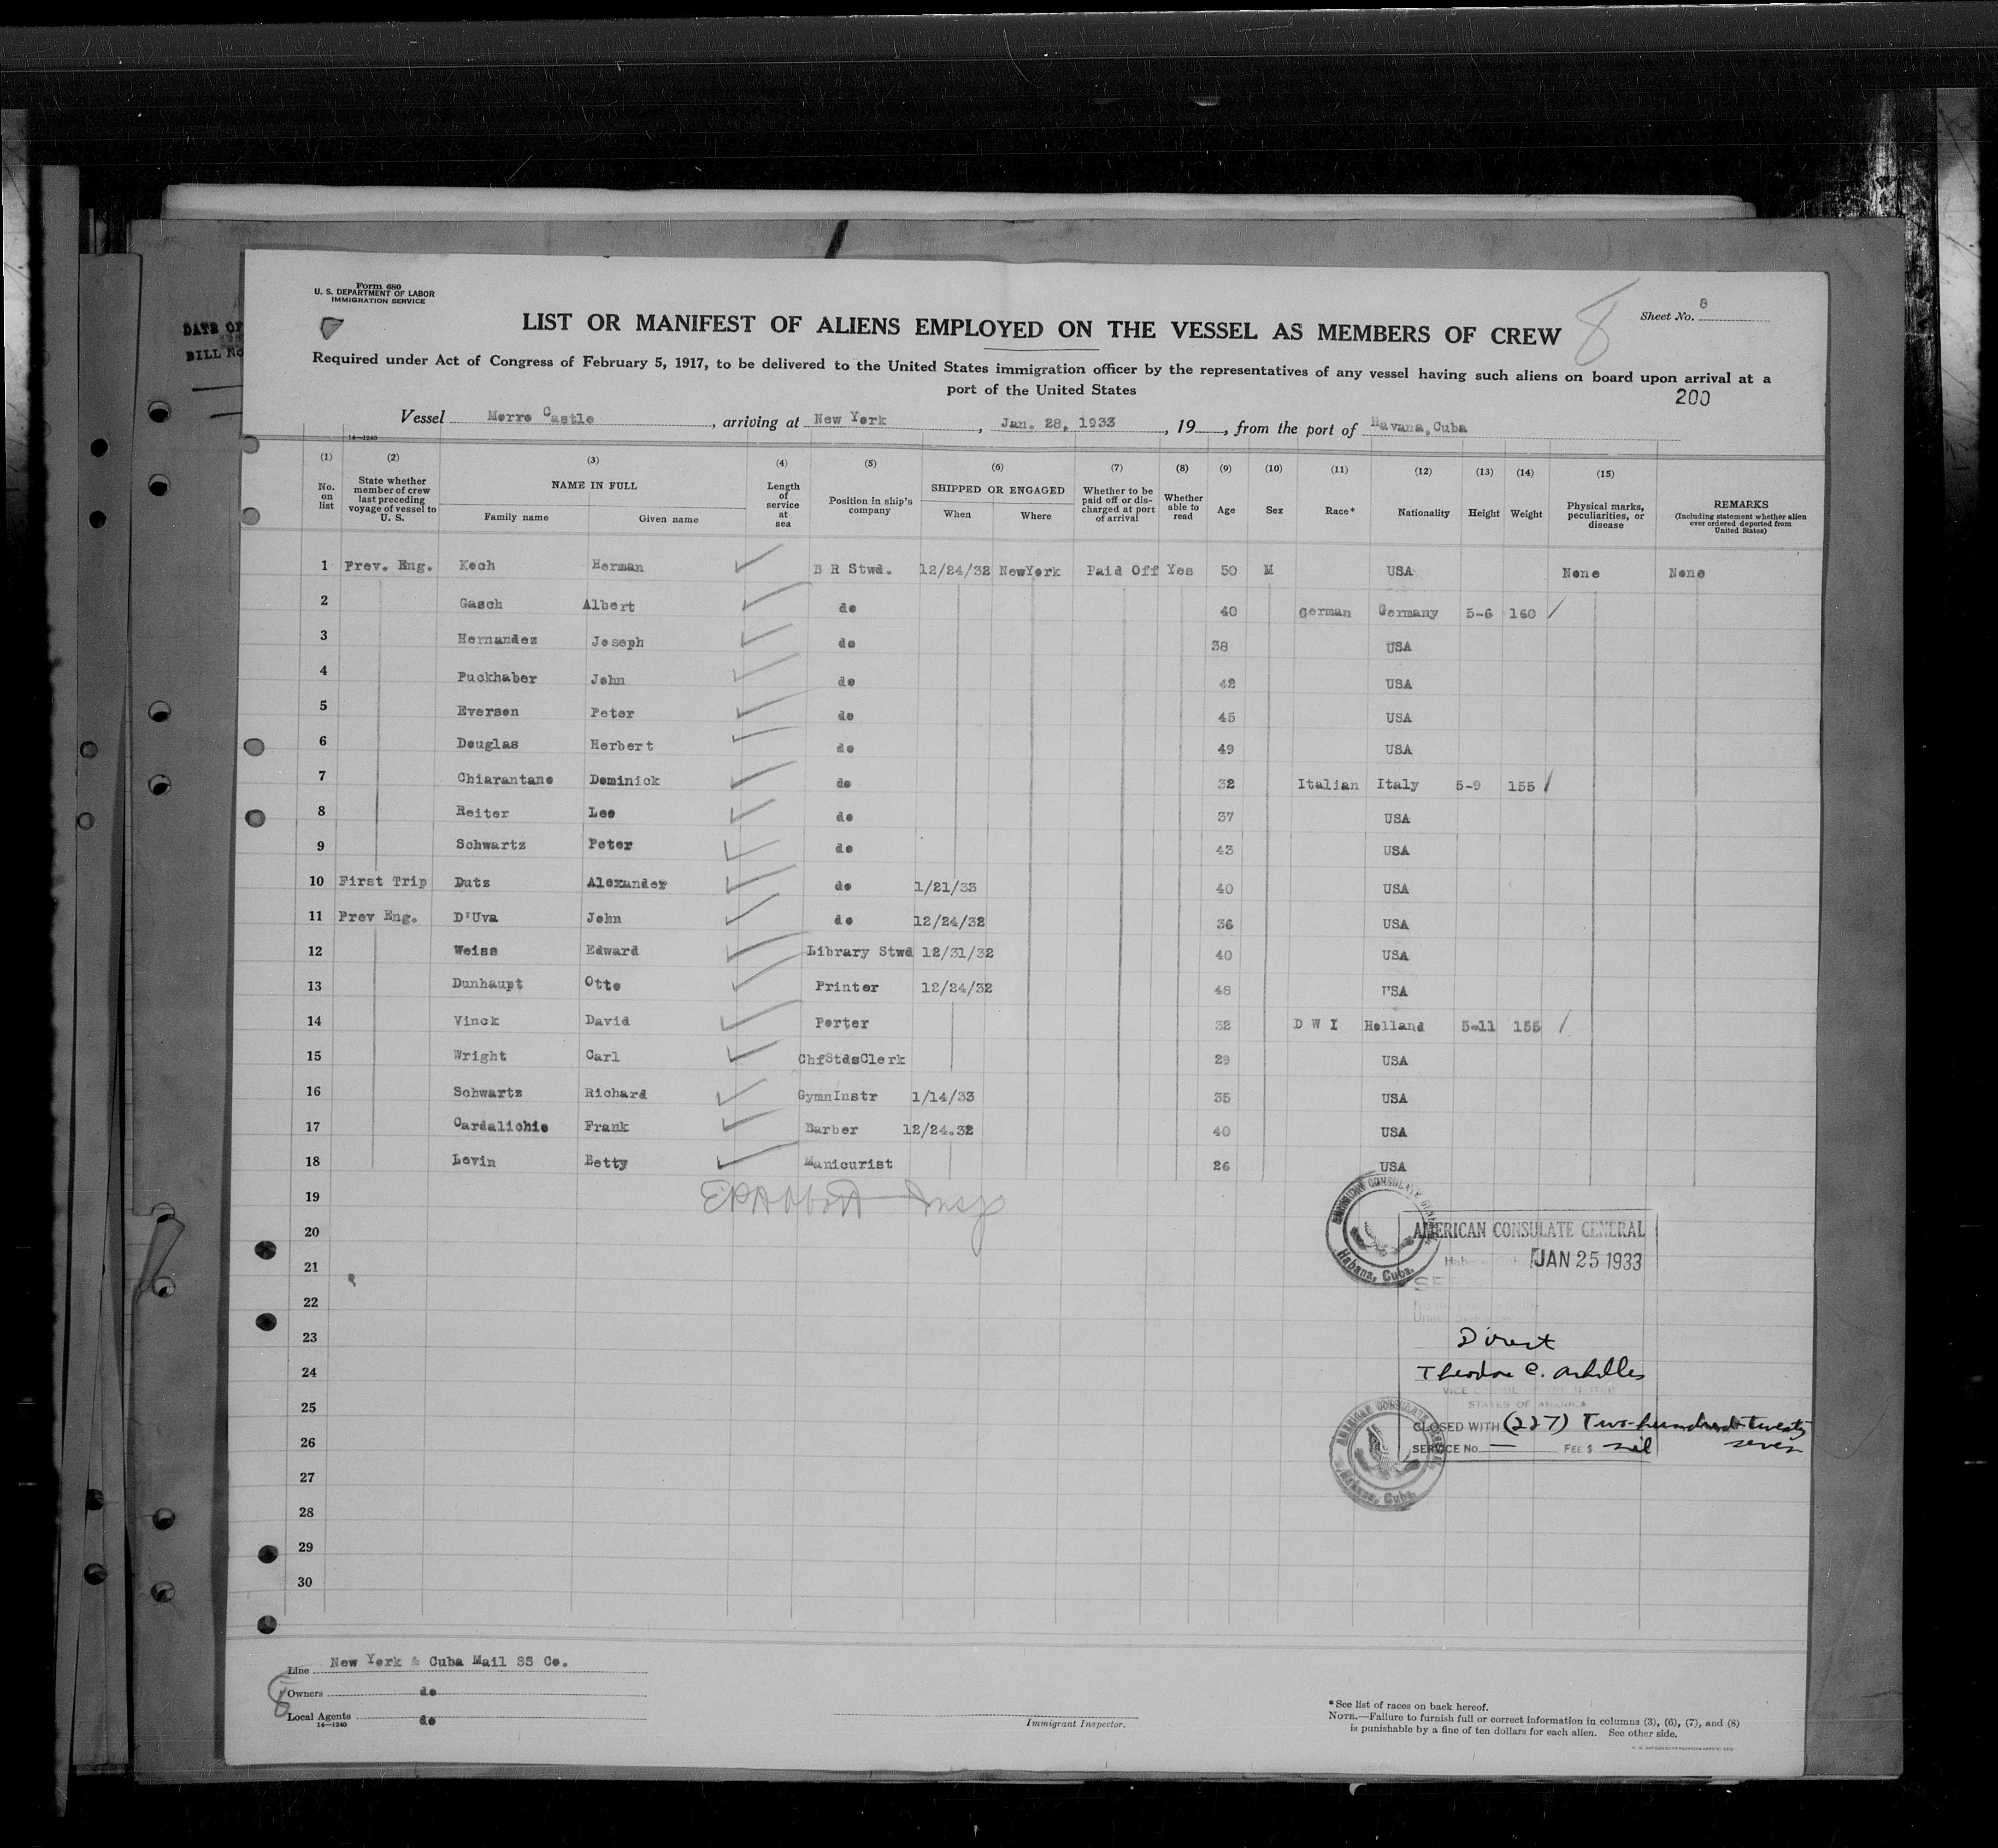 Form 680
U. S. DEPARTMENT OF LABOR
IMMIGRATION SERVICE
Sheet No. 8
8
LIST OR MANIFEST OF ALIENS EMPLOYED ON THE VESSEL AS MEMBERS OF CREW
Required under Act of Congress of February 5, 1917, to be delivered to the United States immigration officer by the representatives of any vessel having such aliens on board upon arrival at a
port of the United States
200
Vessel Morro Castle, arriving at New York, Jan. 28, 1933, 19, from the port of Havana, Cuba
14—1240
(1) (2) (3) (4) (5) (6) (7) (8) (9) (10) (11) (12) (13) (14) (15)
No. on list State whether member of crew last preceding voyage of vessel to U. S. NAME IN FULL Family name Given name Length of service at sea Position in ship's company SHIPPED OR ENGAGED When Where Whether to be paid off or discharged at port of arrival Whether able to read Age Sex Race* Nationality Height Weight Physical marks, peculiarities, or disease REMARKS (Including statement whether alien ever ordered deported from United States)
1 Prev. Eng. Koch Herman B R Stwd. 12/24/32 NewYork Paid Off Yes 50 M USA None None
2 Gasch Albert do 40 German Germany 5-6 160
3 Hernandez Joseph do 38 USA
4 Puckhaber John do 42 USA
5 Eversen Peter do 45 USA
6 Douglas Herbert do 49 USA
7 Chiarantano Dominick do 32 Italian Italy 5-9 155
8 Reiter Leo do 37 USA
9 Schwartz Peter do 43 USA
10 First Trip Dutz Alexander do 1/21/33 40 USA
11 Prev Eng. D'Uva John do 12/24/32 36 USA
12 Weiss Edward Library Stwd 12/31/32 40 USA
13 Dunhaupt Otto Printer 12/24/32 48 USA
14 Vinck David Porter 32 D W I Holland 5-11 155
15 Wright Carl ChfStdsClerk 29 USA
16 Schwartz Richard GymnInstr 1/14/33 35 USA
17 Cardalichio Frank Barber 12/24.32 40 USA
18 Levin Betty Manicurist 26 USA
19
EPAbbott Insp
20
21
22
23
24
25
26
27
28
29
30
AMERICAN CONSULATE GENERAL
Habana, Cuba.
AMERICAN CONSULATE GENERAL
JAN 25 1933
Direct
Theodore C. Achilles
VICE CONSUL OF THE UNITED
STATES OF AMERICA
CLOSED WITH (227) Two-hundred-twenty
seven
SERVICE No. — FEE $ nil
AMERICAN CONSULATE GENERAL
Habana, Cuba.
Line New York & Cuba Mail SS Co.
Owners do
Local Agents do
14—1240
Immigrant Inspector.
* See list of races on back hereof.
NOTE.—Failure to furnish full or correct information in columns (3), (6), (7), and (8)
is punishable by a fine of ten dollars for each alien. See other side.
DATE OF
BILL No